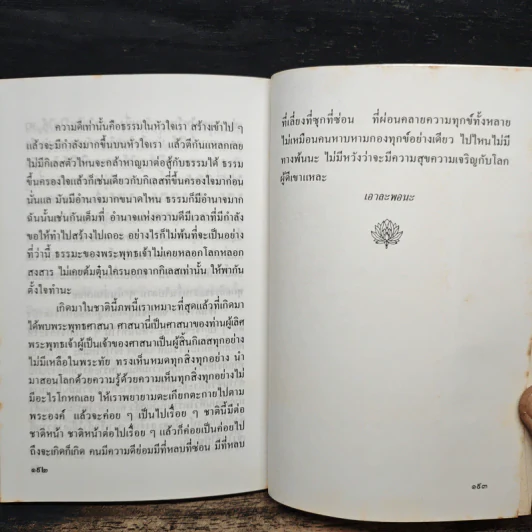 ความดีเท่านั้นคือธรรมในหัวใจเรา สร้างเข้าไป ๆ
แล้วจะมีกำลังมากขึ้นบนหัวใจเรา แล้วตีกันแหลกเลย
ไม่มีกิเลสตัวไหนจะกล้าหาญมาต่อสู้กับธรรมได้ ธรรม
ขึ้นครองใจแล้วก็เช่นเดียวกับกิเลสที่ขึ้นครองใจมาก่อน
นั่นแล มันมีอำนาจมากขนาดไหน ธรรมก็มีอำนาจมาก
ฉันนั้นเช่นกันเต็มที่ อำนาจแห่งความดีมีเวลาที่มีกำลัง
ขอให้ทำไปสร้างไปเถอะ อย่างไรก็ไม่พ้นที่จะเป็นอย่าง
ที่ว่านี้ ธรรมะของพระพุทธเจ้าไม่เคยหลอกโลกหลอก
สงสาร ไม่เคยต้มตุ๋นใครนอกจากกิเลสเท่านั้น ให้พากัน
ตั้งใจทำนะ
เกิดมาในชาตินี้ภพนี้เราเหมาะที่สุดแล้วที่เกิดมา
ได้พบพระพุทธศาสนา ศาสนานี้เป็นศาสนาของท่านผู้เลิศ
พระพุทธเจ้าผู้เป็นเจ้าของศาสนาเป็นผู้สิ้นกิเลสทุกอย่าง
ไม่มีเหลือในพระทัย ทรงเห็นหมดทุกสิ่งทุกอย่าง นำ
มาสอนโลกด้วยความรู้ด้วยความเห็นทุกสิ่งทุกอย่างไม่
มีอะไรโกหกเลย ให้เราพยายามตะเกียกตะกายไปตาม
พระองค์ แล้วจะค่อย ๆ เป็นไปเรื่อย ๆ ชาตินี้มีต่อ
ชาติหน้า ชาติหน้าต่อไปเรื่อย ๆ แล้วก็ค่อยเป็นค่อยไป
ถึงจะเกิดก็เกิด คนมีความดีย่อมมีที่หลบที่ซ่อน มีที่หลบ
๑๕๒
ที่เลี่ยงที่ซุกที่ซ่อน ที่ผ่อนคลายความทุกข์ทั้งหลาย
ไม่เหมือนคนหาบหามกองทุกข์อย่างเดียว ไปไหนไม่มี
ทางพ้นะ ไม่มีหวังว่าจะมีความสุขความเจริญกับโลก
ผู้ดีเขาแหละ
เอาละพอนะ
๑๕๓